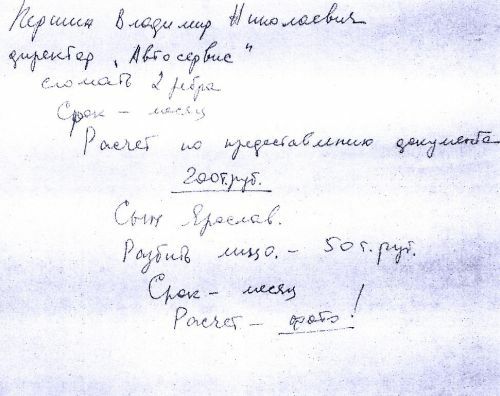 Першин Владимир Николаевич
директор „Автосервис"
сломать 2 ребра
Срок – месяц
Расчет по предоставлению документа
200 т.руб.
Сын Ярослав.
Разбить лицо. – 50 т. руб.
Срок – месяц
Расчет – фото!